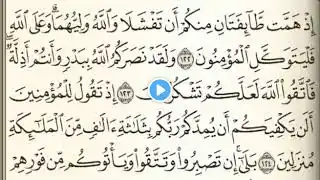 إِذْ هَمَّت طَّآئِفَتَانِ مِنكُمْ أَن تَفْشَلَا وَٱللَّهُ وَلِيُّهُمَا ۗ وَعَلَى ٱللَّهِ
فَلْيَتَوَكَّلِ ٱلْمُؤْمِنُونَ ١٢٢ وَلَقَدْ نَصَرَكُمُ ٱللَّهُ بِبَدْرٍ وَأَنتُمْ أَذِلَّةٌ ۖ
فَٱتَّقُوا۟ ٱللَّهَ لَعَلَّكُمْ تَشْكُرُونَ ١٢٣ إِذْ تَقُولُ لِلْمُؤْمِنِينَ
أَلَن يَكْفِيَكُمْ أَن يُمِدَّكُمْ رَبُّكُم بِثَلَـٰثَةِ ءَالَـٰفٍ مِّنَ ٱلْمَلَـٰٓئِكَةِ
مُنزَلِينَ ١٢٤ بَلَىٰٓ ۚ إِن تَصْبِرُوا۟ وَتَتَّقُوا۟ وَيَأْتُوكُم مِّن فَوْرِهِمْ